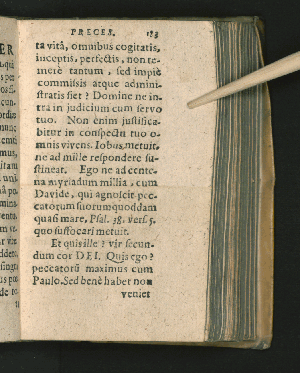 PRECES. 183
ta vitâ, omnibus cogitatis,
inceptis, perfectis, non te-
merè tantum, sed impiè
commissis atque admini-
stratis fiet? Domine ne in-
tra in judicium cum servo
tuo. Non enim justifica-
bitur in conspectu tuo o-
mnis vivens. Iobus metuit,
ne ad mille respondere su-
stineat. Ego ne ad cente-
na myriadum millia, cum
Davide, qui agnoscit pec-
catorum suorum quoddam
quasi mare, Psal. 38. vers. 5.
quo suffocari metuit.
Et quis ille? vir secun-
dum cor DEI. Quis ego?
peccatorũ maximus cum
Paulo. Sed benè habet non
veniet